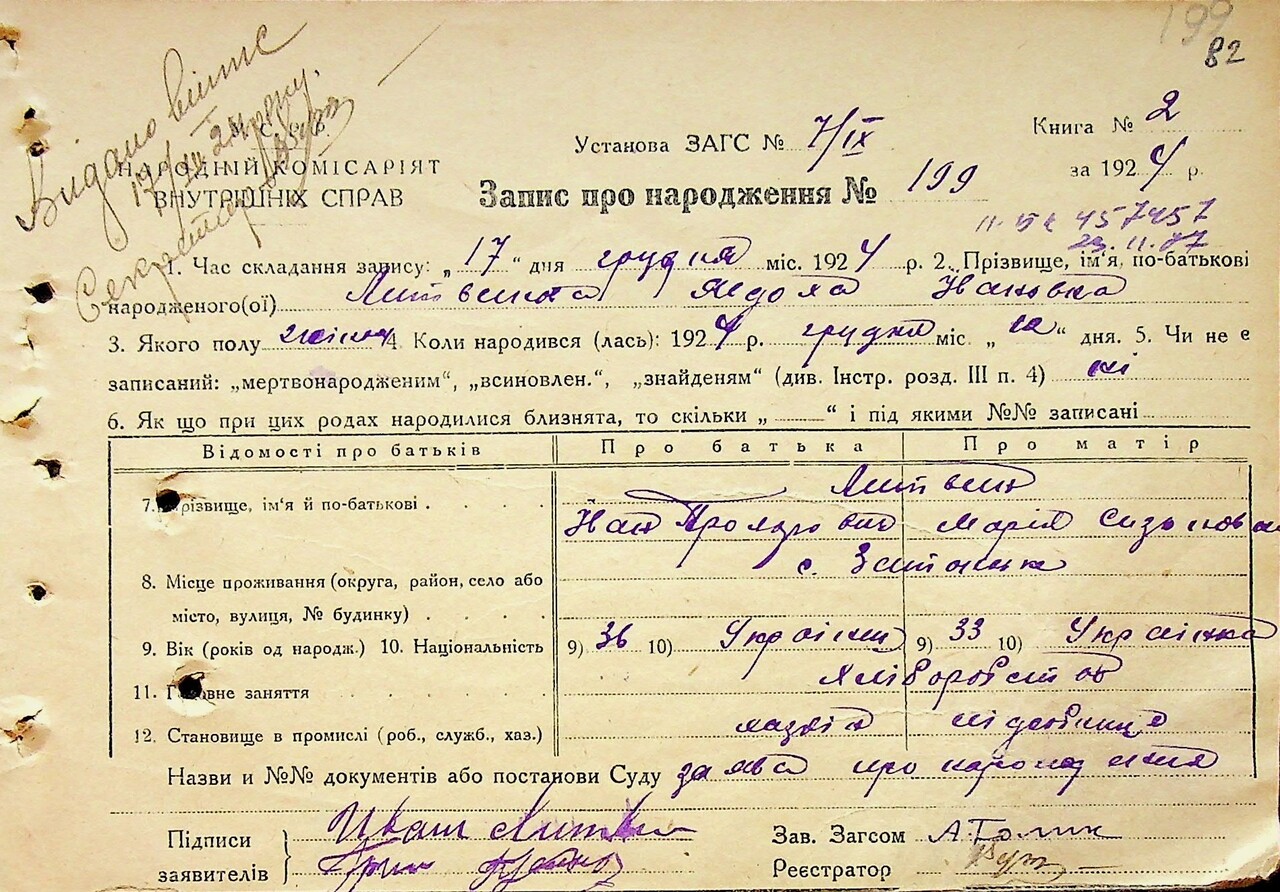 199
82
Видано витяг
17/XII 24 року.
Секретар
У.С.Р.Р.
НАРОДНІЙ КОМІСАРІЯТ
ВНУТРІШНІХ СПРАВ
Установа ЗАГС № 7/IX
Книга № 2
за 1924 р.
Запис про народження № 199
457457
23.11.87
1. Час складання запису: „17“ дня грудня міс. 1924 р. 2. Прізвище, ім'я, по-батькові
народженого(ої) Литвинова Явдоха Ивановна
3. Якого полу жіноч 4. Коли народився (лась): 1924 р. грудня міс. „ “ дня. 5. Чи не є
записаний: „мертвонародженим“, „всиновлен.“, „знайденям“ (див. Інстр. розд. III п. 4) ні
6. Як що при цих родах народилися близнята, то скільки „ “ і під якими №№ записані
Відомості про батьків Про батька Про матір
7. Прізвище, ім'я й по-батькові Литвин
Иван Марія
8. Місце проживання (округа, район, село або с.
місто, вулиця, № будинку)
9. Вік (років од народж.) 10. Національність 9) 36 10) Українц 9) 33 10) Українка
11. Головне заняття Хліборобство
12. Становище в промислі (роб., служб., хаз.) хазяїн
Назви и №№ документів або постанови Суду заява про народження
Підписи Иван Литвин
заявителів
Зав. Загсом А Голик
Реєстратор